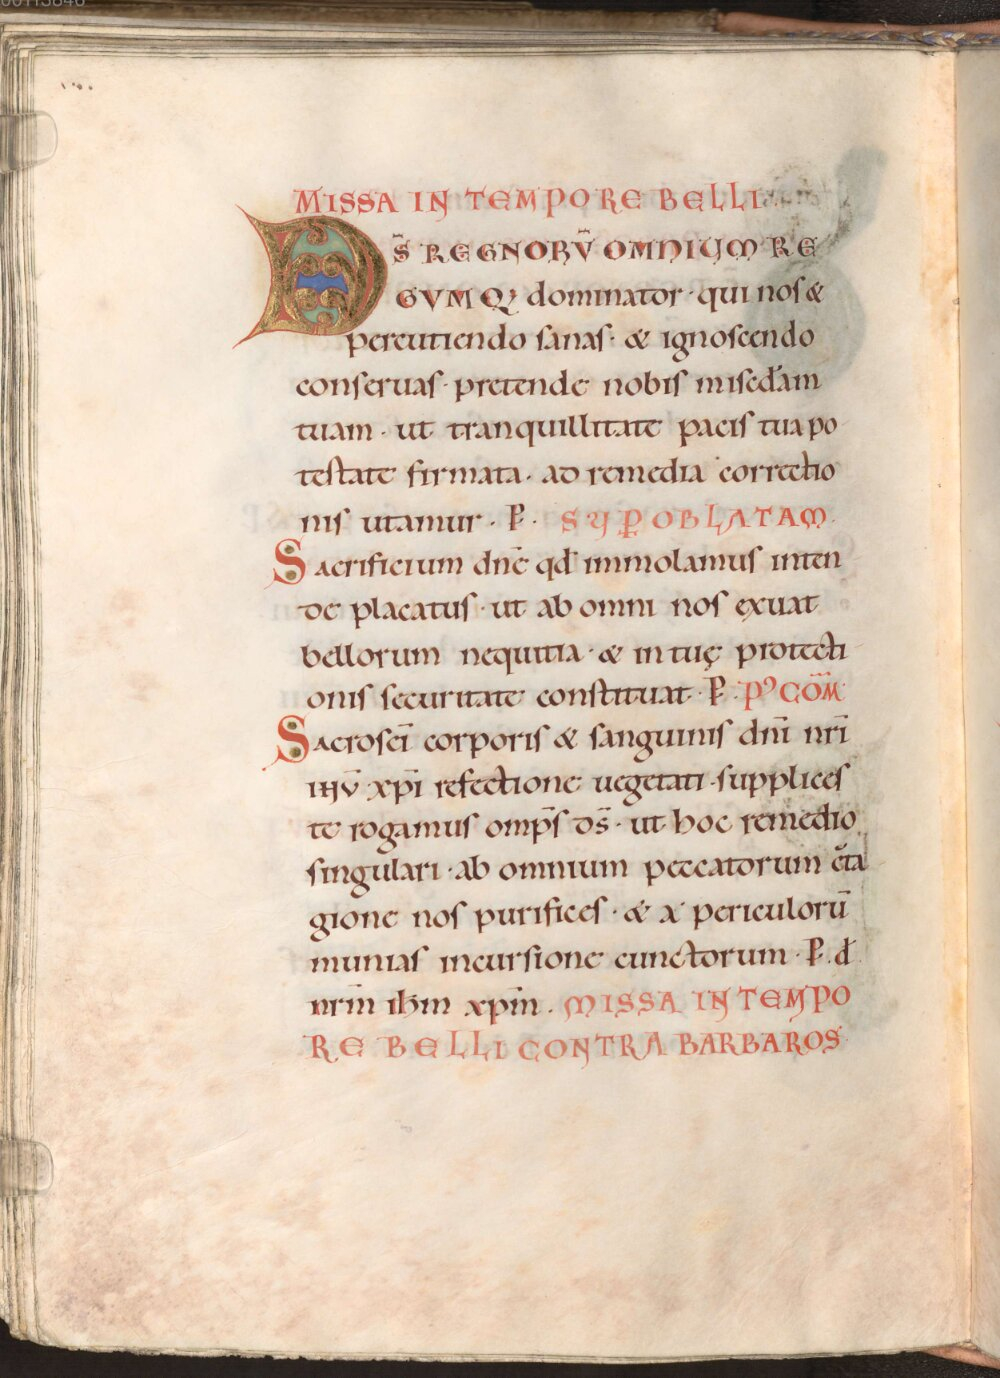 MISSA IN TEMPORE BELLI
DS̄ REGNORV̄ OMNIUM RE
GVMQ; dominator· qui nos &
percutiendo sanas· & ignoscendo
conseruas· pretende nobis misedām
tuam· ut tranquillitate pacis tua po
testate firmata· ad remedia correctio
nis utamur· P̄· SUP̲ OBLATAM·
Sacrificium dn̄e qd̄ immolamus inten
de placatus· ut ab omni nos exuat
bellorum nequitia· & in tuę protecti
onis securitate constituat· P̄· P᾽COM̄
Sacrosc̄i corporis & sanguinis dn̄i nr̄i
ihū xp̄i refectione uegetati· supplices
te rogamus omp̄s ds̄· ut hoc remedio
singulari· ab omnium peccatorum c̄ta
gione nos purifices· & a periculorū
munias incursione cunctorum· P̄. d̄
nr̄m ih̄m xp̄m. MISSA IN TEMPO
RE BELLI CONTRA BARBAROS